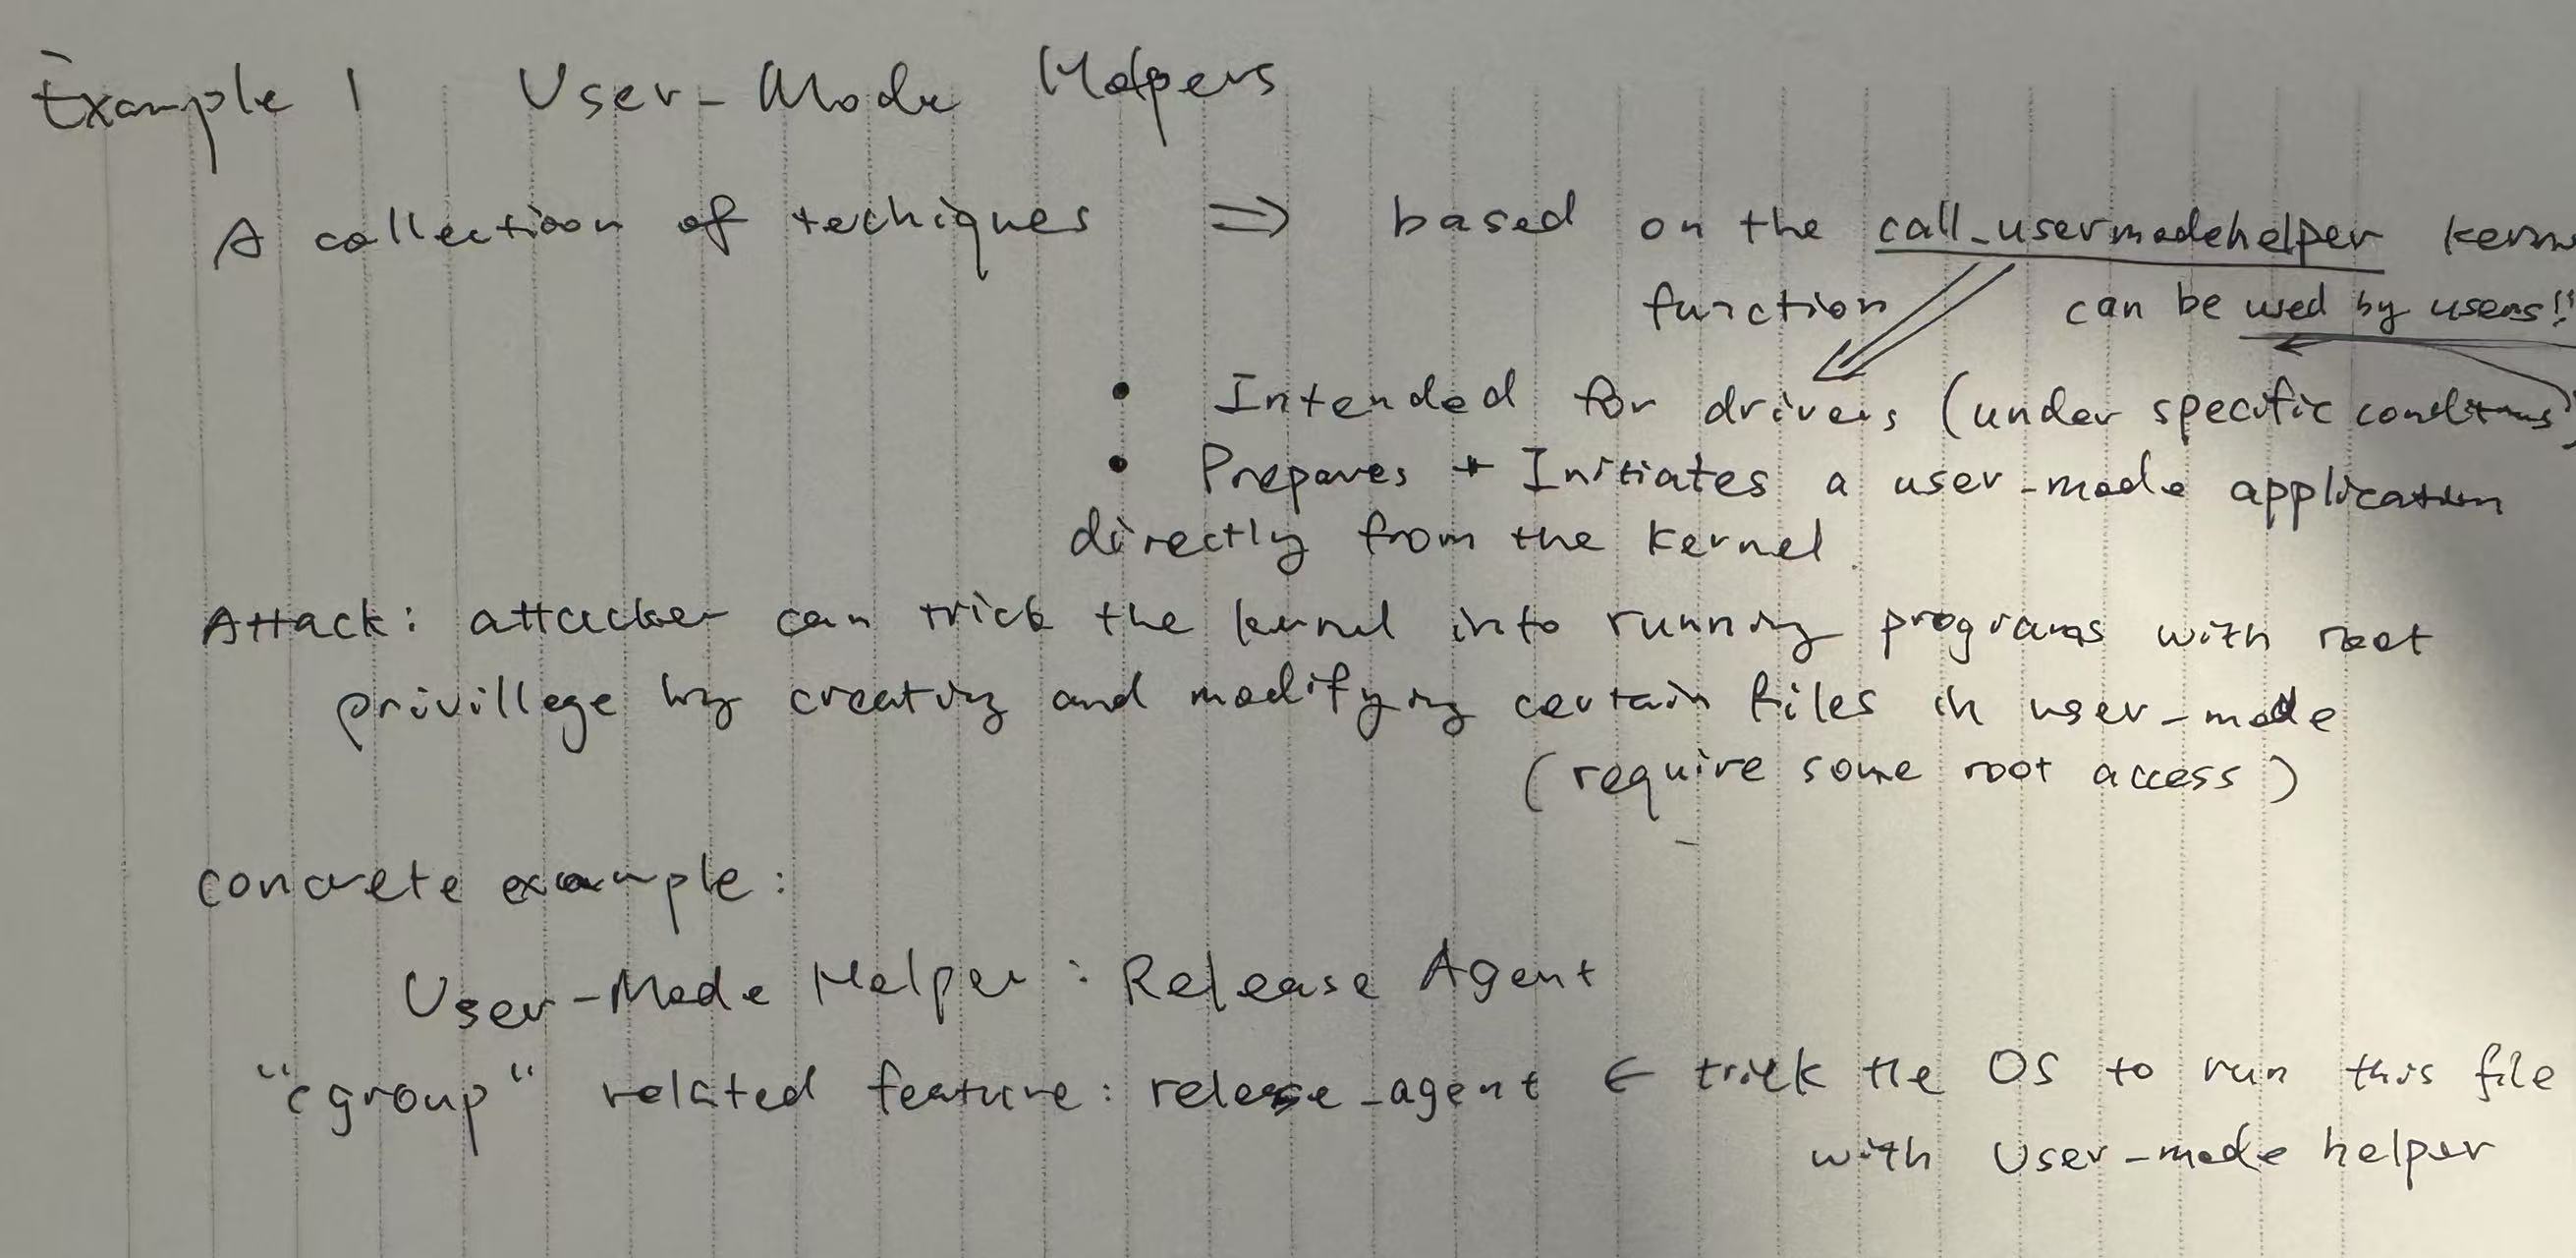 Example 1 User-Mode Helpers
A collection of techiques ⇒ based on the call_usermodehelper
function can be used by users!!
• Intended for drivers (under specific conditions)
• Prepares + Initiates a user-mode application
directly from the kernel
Attack: attacker can trick the kernel into running programs with root
privillege by creating and modifying certain files in user-mode
(require some root access)
concrete example:
User-Mode Helper: Release Agent
"cgroup" related feature: release_agent ← trick the OS to run this file
with User-mode helper